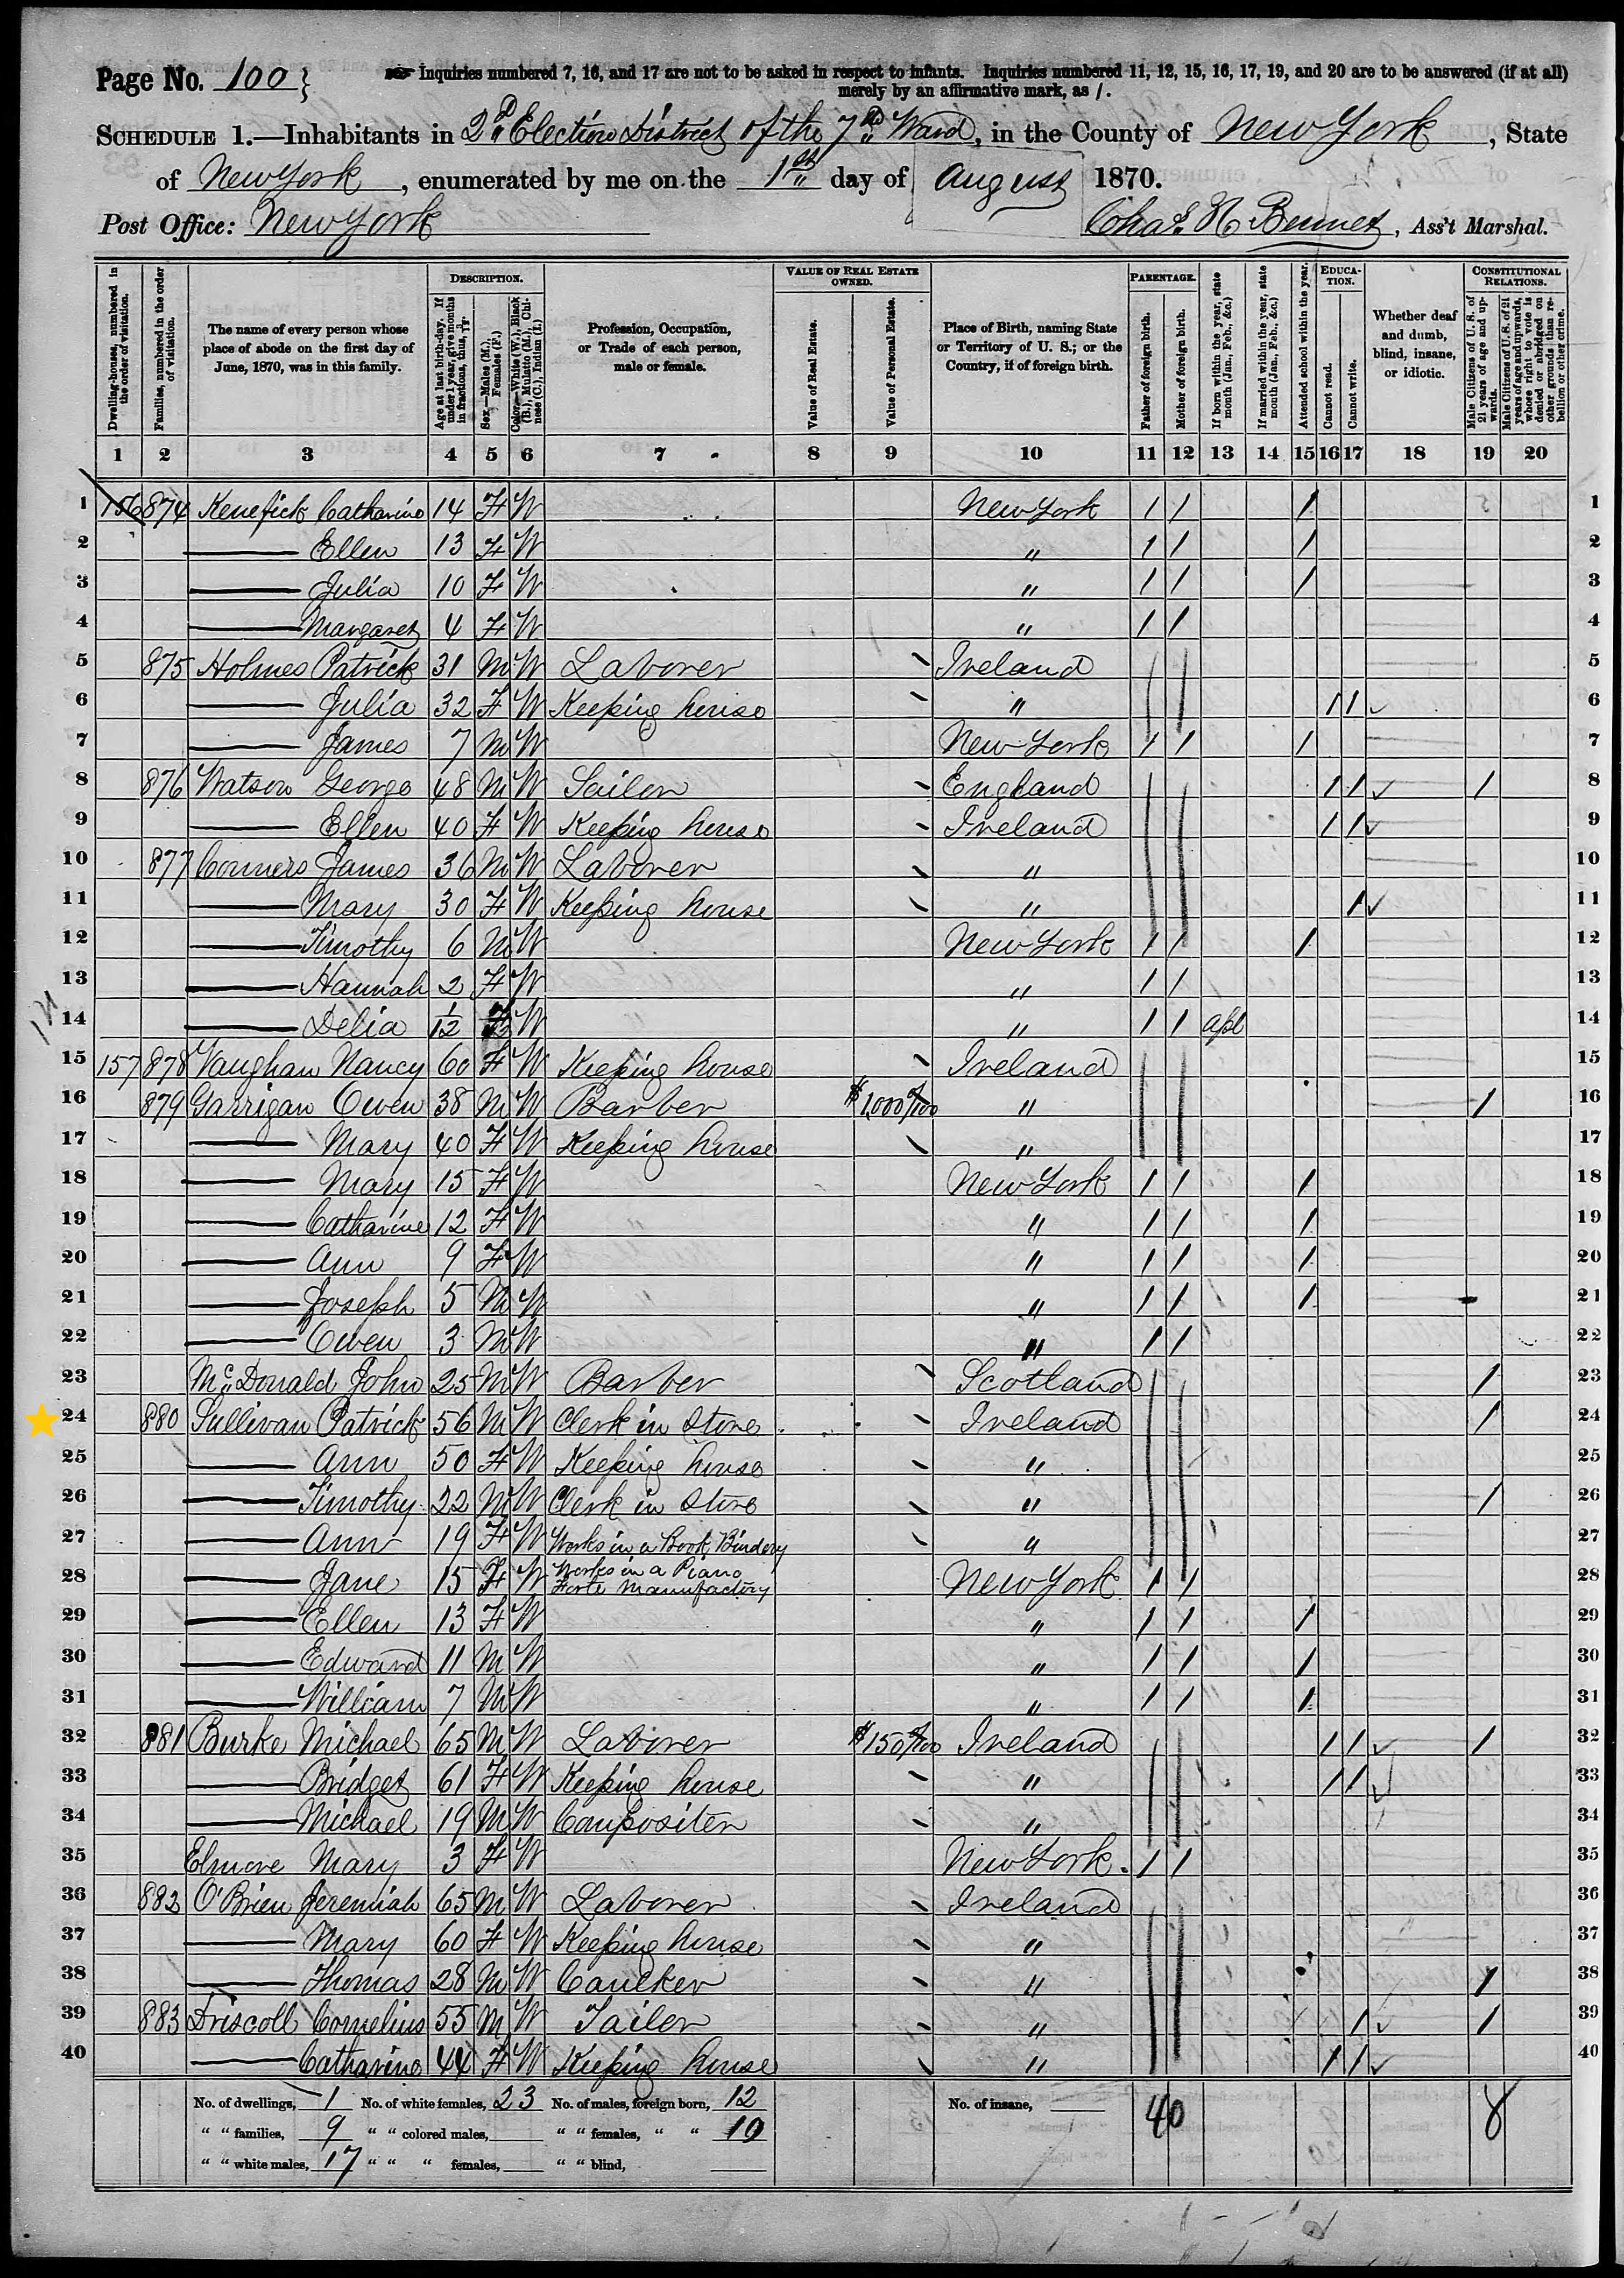 Page No. 100 } Inquiries numbered 7, 16, and 17 are not to be asked in respect to infants. Inquiries numbered 11, 12, 15, 16, 17, 19, and 20 are to be answered (if at all)
merely by an affirmative mark, as /.
SCHEDULE 1.—Inhabitants in 2d Election District of the 7th Ward, in the County of New York, State
of New York, enumerated by me on the 1st day of August 1870.
Post Office: New York Chas. H. Bennet, Ass't Marshal.
Dwelling-houses, numbered in the order of visitation.
Families, numbered in the order of visitation.
The name of every person whose place of abode on the first day of June, 1870, was in this family.
DESCRIPTION.
Age at last birth-day. If under 1 year, give months in fractions, thus, 3/12.
Sex.—Males (M.), Females (F.)
Color.—White (W.), Black (B.), Mulatto (M.), Chinese (C.), Indian (I.)
Profession, Occupation, or Trade of each person, male or female.
VALUE OF REAL ESTATE OWNED.
Value of Real Estate.
Value of Personal Estate.
Place of Birth, naming State or Territory of U. S.; or the Country, if of foreign birth.
PARENTAGE.
Father of foreign birth.
Mother of foreign birth.
If born within the year, state month (Jan., Feb., &c.)
If married within the year, state month (Jan., Feb., &c.)
Attended school within the year.
EDUCATION.
Cannot read.
Cannot write.
Whether deaf and dumb, blind, insane, or idiotic.
CONSTITUTIONAL RELATIONS.
Male Citizens of U. S. of 21 years of age and upwards.
Male Citizens of U. S. of 21 years of age and upwards, whose right to vote is denied or abridged on other grounds than rebellion or other crime.
1 2 3 4 5 6 7 8 9 10 11 12 13 14 15 16 17 18 19 20
1 156 874 Kenefick Catharine 14 F W New York / / / 1
2 —— Ellen 13 F W " / / / 2
3 —— Julia 10 F W " / / / 3
4 —— Margaret 4 F W " / / 4
5 875 Holmes Patrick 31 M W Laborer Ireland 5
6 —— Julia 32 F W Keeping house " / / ✓ 6
7 —— James 7 M W New York / / / 7
8 876 Watson George 48 M W Sailor England / / ✓ / 8
9 —— Ellen 40 F W Keeping house Ireland / / ✓ 9
10 877 Conners James 36 M W Laborer " 10
11 —— Mary 30 F W Keeping house " / ✓ 11
12 —— Timothy 6 M W New York / / / 12
13 —— Hannah 2 F W " / / 13
14 —— Delia 1/12 F W " / / Apl 14
15 157 878 Vaughan Nancy 60 F W Keeping house Ireland 15
16 879 Garrigan Owen 38 M W Barber $1,000 "/100 " / 16
17 —— Mary 40 F W Keeping house " 17
18 —— Mary 15 F W New York / / / 18
19 —— Catharine 12 F W " / / / 19
20 —— Ann 9 F W " / / / 20
21 —— Joseph 5 M W " / / / 21
22 —— Owen 3 M W " / / 22
23 McDonald John 25 M W Barber Scotland / 23
24 880 Sullivan Patrick 56 M W Clerk in Store Ireland / 24
25 —— Ann 50 F W Keeping house " 25
26 —— Timothy 22 M W Clerk in Store " / 26
27 —— Ann 19 F W Works in a Book Bindery " 27
28 —— Jane 15 F W Works in a Piano Forte Manufactory New York / / 28
29 —— Ellen 13 F W " / / / 29
30 —— Edward 11 M W " / / / 30
31 —— William 7 M W " / / / 31
32 881 Burke Michael 65 M W Laborer $150 "/100 Ireland / / ✓ / 32
33 —— Bridget 61 F W Keeping house " / / ✓ 33
34 —— Michael 19 M W Compositer " 34
35 Elmore Mary 3 F W New York / / 35
36 882 O'Brien Jeremiah 65 M W Laborer Ireland 36
37 —— Mary 60 F W Keeping house " 37
38 —— Thomas 28 M W Caulker " / 38
39 883 Driscoll Cornelius 55 M W Tailor " / ✓ / 39
40 —— Catharine 44 F W Keeping house " / / ✓ 40
No. of dwellings, 1 No. of white females, 23 No. of males, foreign born, 12 No. of insane, 40 8
" " families, 9 " " colored males, " " females, " " 10
" " white males, 17 " " " females, " " blind,